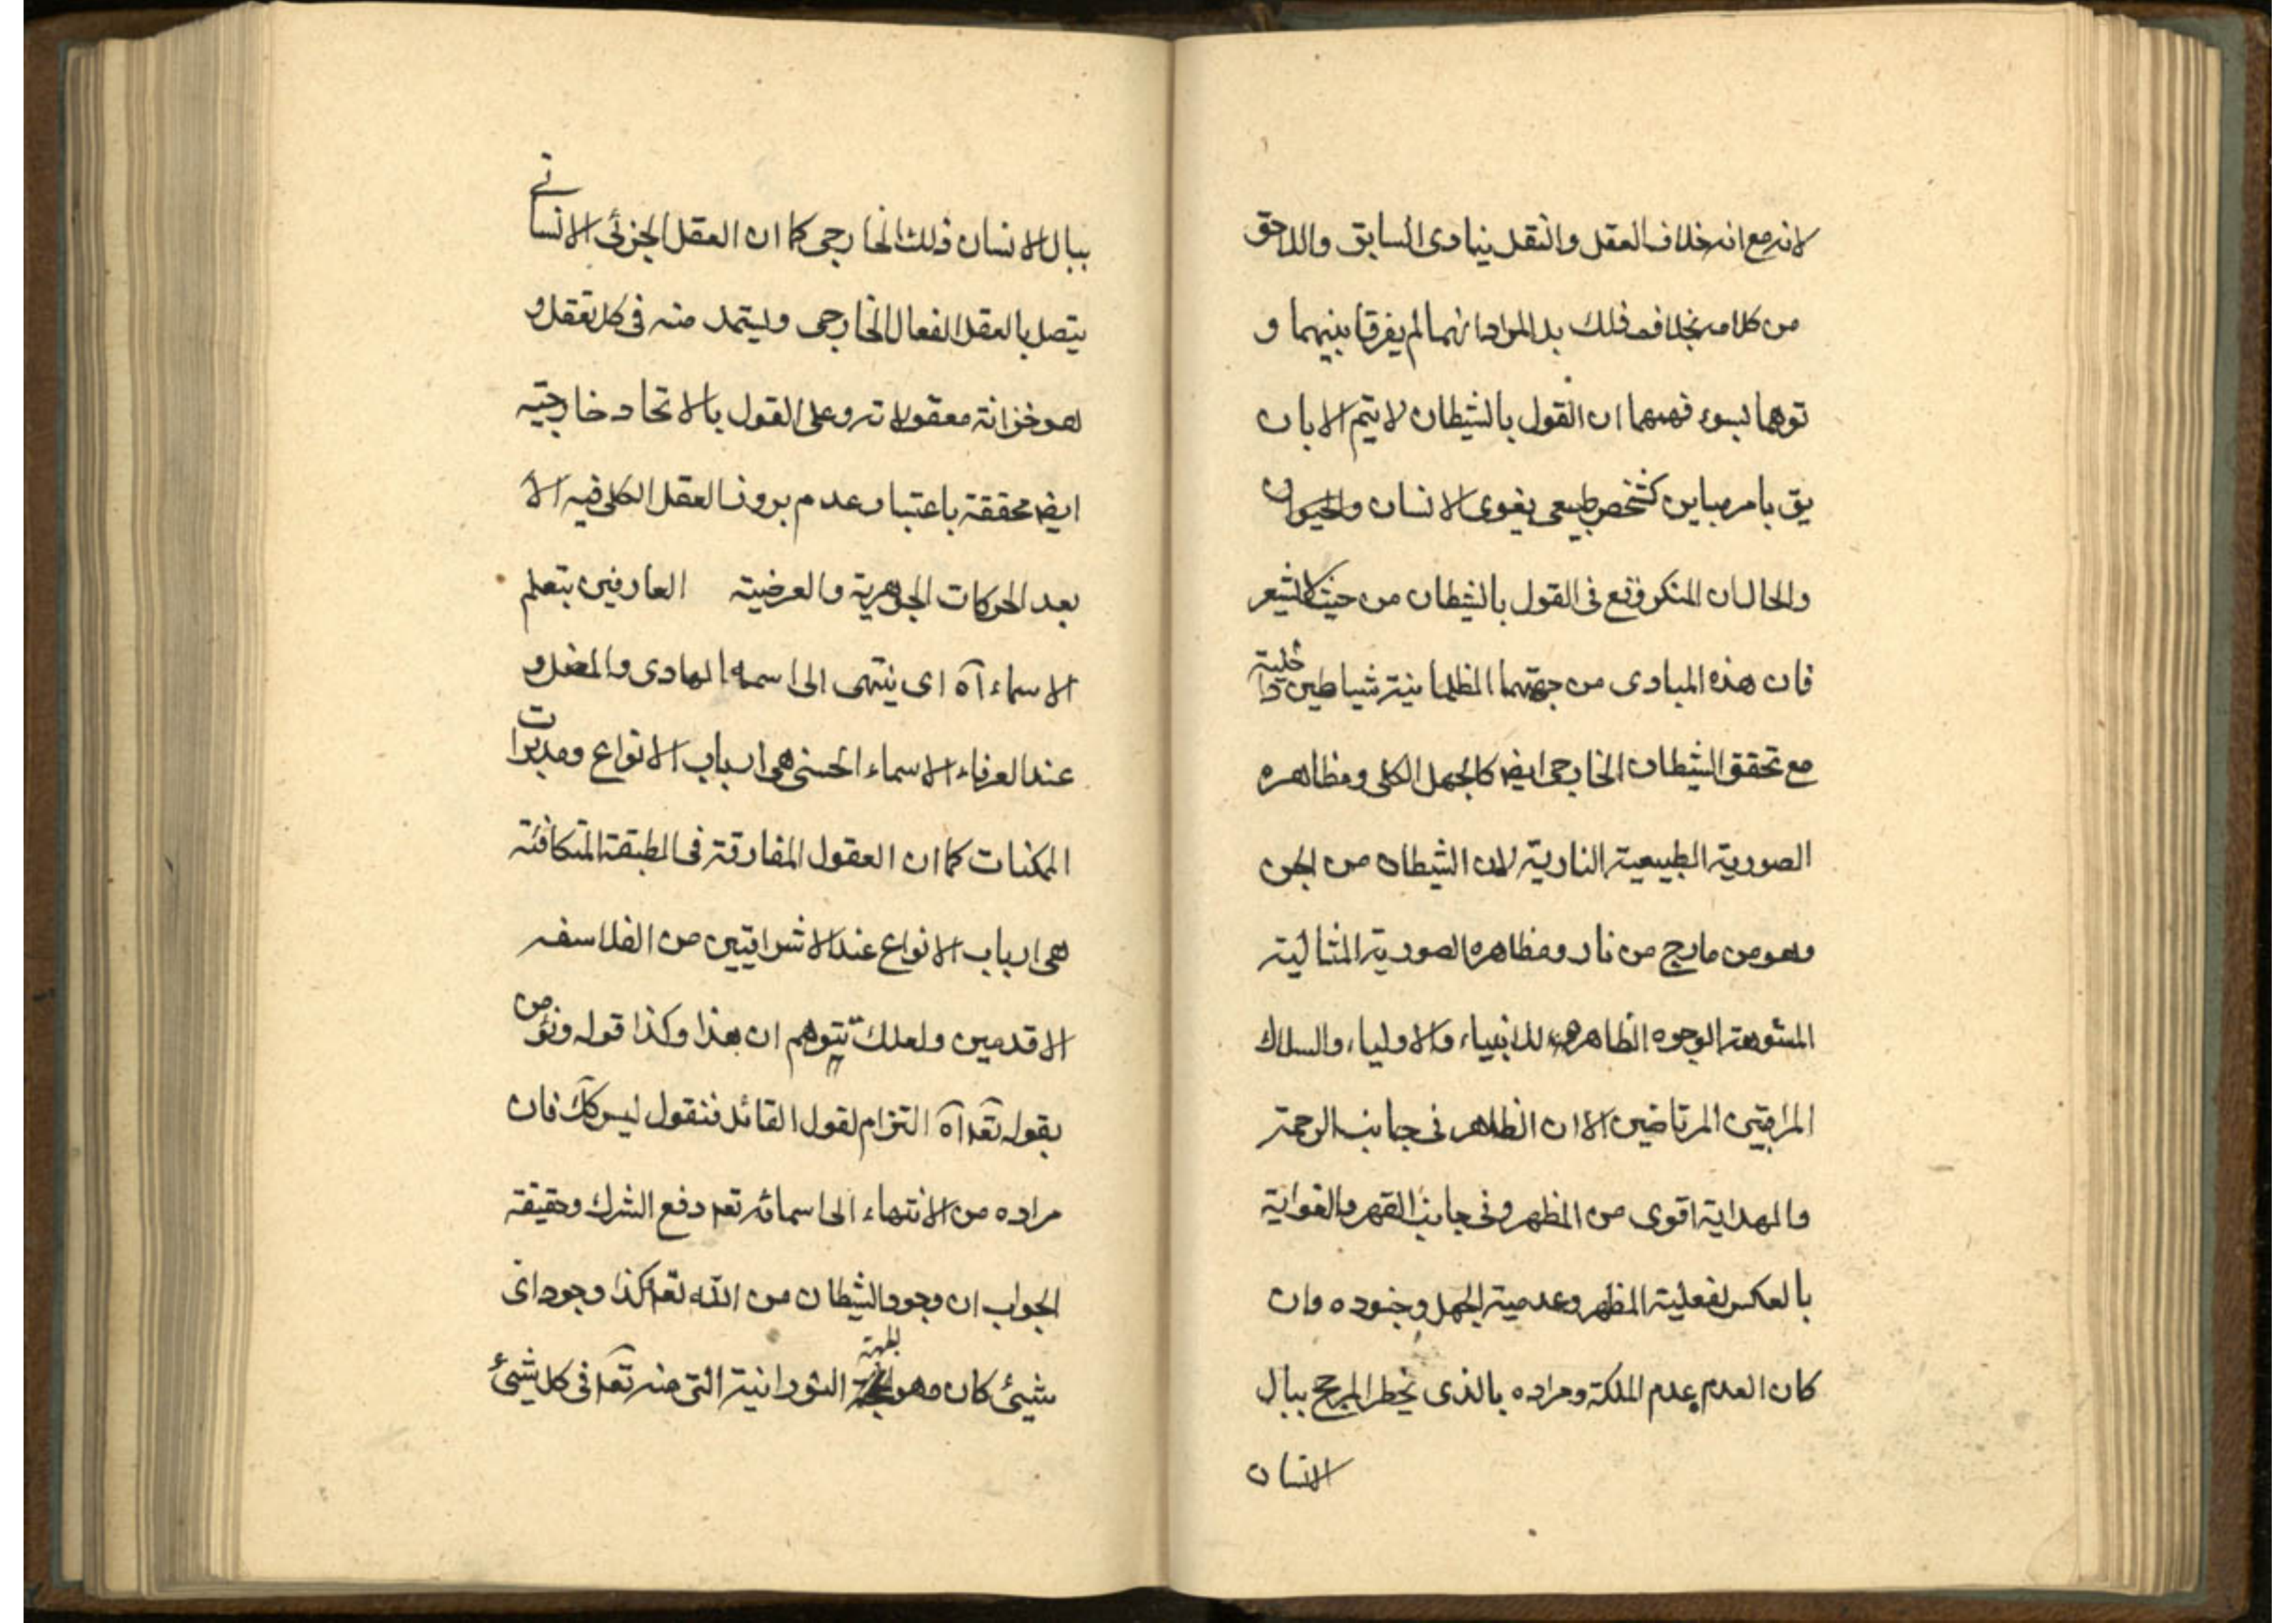 لانه مع انه خلاف العقل والنقل ينادى السابق واللاحق
من كلامه بخلاف ذلك بل المراد انهما لم يفرقا بينهما و
توهما لسوء فهمهما ان القول بالشيطان لا يتم الا بان
يق بامر مباين كشخص طبيعى يغوى الانسان والحيوان
والحال ان المنكر وقع فى القول بالشيطان من حيث لا يشعر
فان هذه المبادى من جهتهما الظلمانية شياطين داخلية
مع تحقق الشيطان الخارجى ايض كالجهل الكلى ومظاهره
الصورية الطبيعية النارية لان الشيطان من الجن
وهو من مارج من نار ومظاهره الصورية المثالية
المشوهة الوجوه الظاهرة للانبياء والاولياء والسلاك
المراقبين المرتاضين الا ان الظاهر فى جانب الرحمة
والهداية اقوى من المظهر وفى جانب القهر والغواية
بالعكس لفعلية المظهر وعدمية الجهل وجنوده وان
كان العدم عدم الملكة ومراده بالذى يخطر المرجح ببال
الانسان
ببال الانسان ذلك الخارجى كما ان العقل الجزئى الانسانى
يتصل بالعقل الفعال الخارجى ويستمد منه فى كل تعقل و
هو خزانة معقولاته وعلى القول بالاتحاد خارجيته
ايض محققة باعتبار عدم بروز العقل الكلى فيه الا
بعد الحركات الجوهرية والعرضية العارفين بتعلم
الاسماء آه اى ينتهى الى اسمه الهادى والمضل و
عند العرفاء الاسماء الحسنى هى ارباب الانواع ومدبرات
الممكنات كما ان العقول المفارقة فى الطبقة المتكافئة
هى ارباب الانواع عند الاشراقيين من الفلاسفه
الاقدمين ولعلك تتوهم ان هذا وكذا قوله ونؤمن
بقوله تعه آه التزام لقول القائل فنقول ليس كك فان
مراده من الانتهاء الى اسمائه تعه دفع الشرك وحقيقة
الجواب ان وجود الشيطان من الله تعه كذا وجود اى
شيئ كان وهو الجهة النورانية التى منه تعه فى كل شيئ